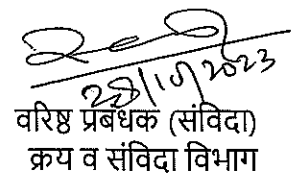 28/10/2023
वरिष्ठ प्रबंधक (संविदा)
क्रय व संविदा विभाग